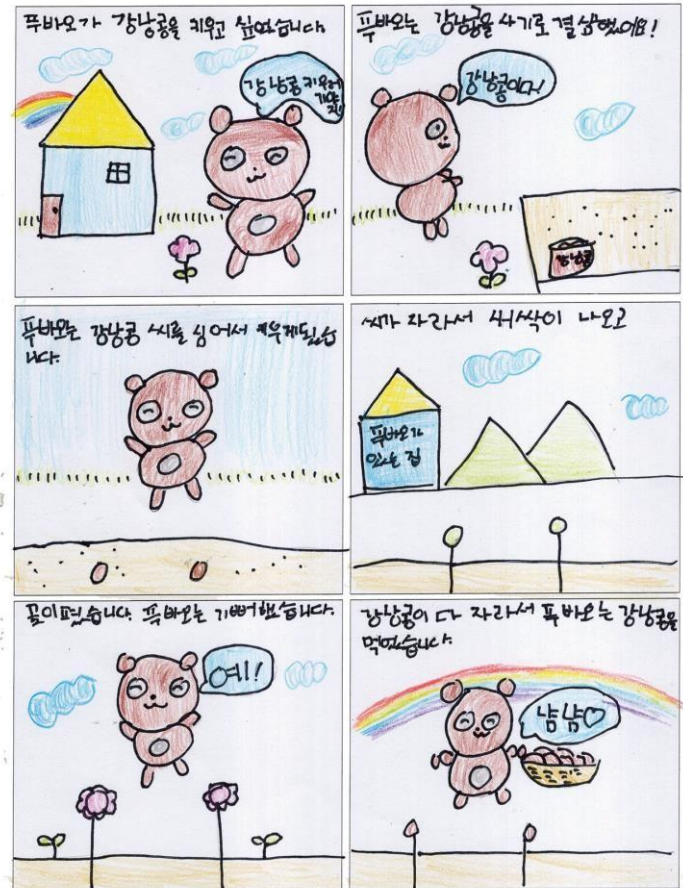 푸바오가 강낭콩을 키우고 싶었습니다.
강낭콩 키우러
가야
지!
푸바오는 강낭콩을 사기로 결심했어요!
강낭콩이다!
강낭콩
푸바오는 강낭콩 씨를 심어서 키우게됬습
니다.
씨가 자라서 새싹이 나오고
푸바오가
있는 집
꽃이폈습니다. 푸바오는 기뻐했습니다.
예!
강낭콩이 다 자라서 푸바오는 강낭콩을
먹었습니다.
냠냠♡